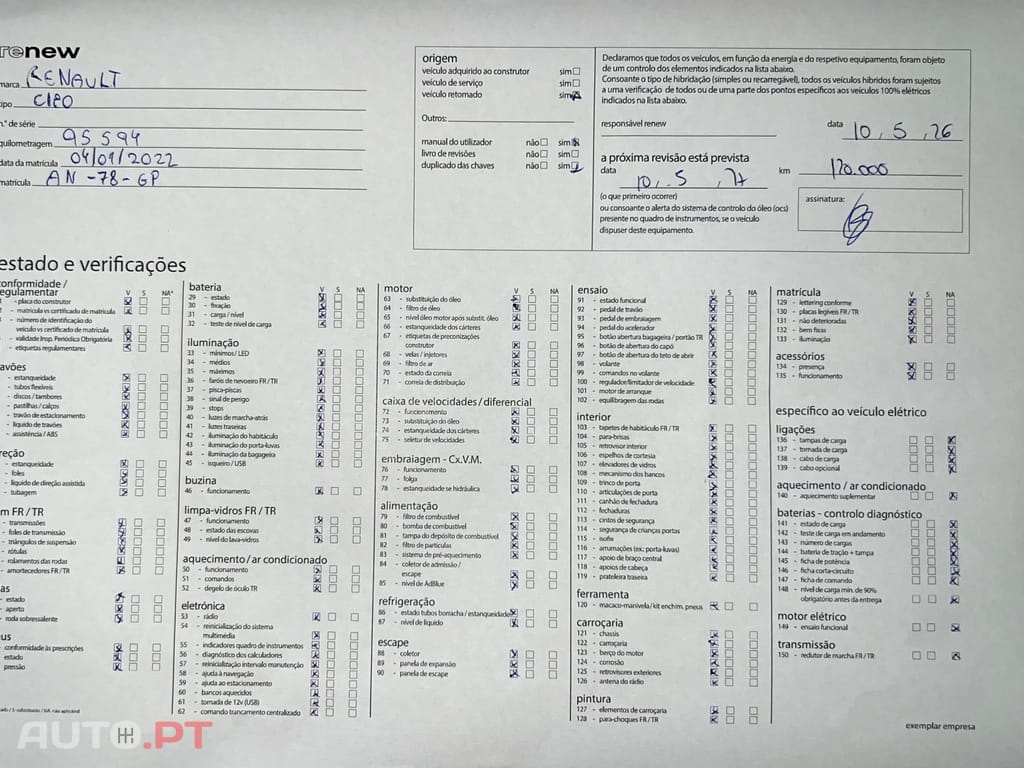 renew
marca RENAULT
tipo CLIO
n.º de série
quilometragem 95594
data da matrícula 04/01/2022
matrícula AN-78-GP
origem
veículo adquirido ao construtor sim
veículo de serviço sim
veículo retomado sim
Outros:
manual do utilizador não sim
livro de revisões não sim
duplicado das chaves não sim
Declaramos que todos os veículos, em função da energia e do respetivo equipamento, foram objeto
de um controlo dos elementos indicados na lista abaixo.
Consoante o tipo de hibridação (simples ou recarregável), todos os veículos híbridos foram sujeitos
a uma verificação de todos ou de uma parte dos pontos específicos aos veículos 100% elétricos
indicados na lista abaixo.
responsável renew data 10, 5, 26
a próxima revisão está prevista
data 10, 5, km 120.000
(o que primeiro ocorrer)
ou consoante o alerta do sistema de controlo do óleo (ocs)
presente no quadro de instrumentos, se o veículo
dispuser deste equipamento.
assinatura:
estado e verificações
conformidade /
regulamentar V S NA*
- placa do construtor
- matrícula vs certificado de matrícula
- número de identificação do
veículo vs certificado de matrícula
- validade Insp. Periódica Obrigatória
- etiquetas regulamentares
avões
- estanqueidade
- tubos flexíveis
- discos / tambores
- pastilhas / calços
- travão de estacionamento
- líquido de travões
- assistência / ABS
reção
- estanqueidade
- foles
- líquido de direção assistida
- tubagem
m FR / TR
- transmissões
- foles de transmissão
- triângulos de suspensão
- rótulas
- rolamentos das rodas
- amortecedores FR / TR
as
- estado
- aperto
- roda sobressalente
us
- conformidade às prescrições
- estado
- pressão
bateria V S NA
29 - estado
30 - fixação
31 - carga / nível
32 - teste de nível de carga
iluminação
33 - mínimos / LED
34 - médios
35 - máximos
36 - faróis de nevoeiro FR / TR
37 - pisca-piscas
38 - sinal de perigo
39 - stops
40 - luzes de marcha-atrás
41 - luzes traseiras
42 - iluminação do habitáculo
43 - iluminação do porta-luvas
44 - iluminação da bagageira
45 - isqueiro / USB
buzina
46 - funcionamento
limpa-vidros FR / TR
47 - funcionamento
48 - estado das escovas
49 - nível do lava-vidros
aquecimento / ar condicionado
50 - funcionamento
51 - comandos
52 - degelo de óculo TR
eletrónica
53 - rádio
54 - reinicialização do sistema
multimédia
55 - indicadores quadro de instrumentos
56 - diagnóstico dos calculadores
57 - reinicialização intervalo manutenção
58 - ajuda à navegação
59 - ajuda ao estacionamento
60 - bancos aquecidos
61 - tomada de 12v (USB)
62 - comando trancamento centralizado
motor V S NA
63 - substituição do óleo
64 - filtro de óleo
65 - nível óleo motor após substit. óleo
66 - estanqueidade dos cárteres
67 - etiquetas de preconizações
construtor
68 - velas / injetores
69 - filtro de ar
70 - estado da correia
71 - correia de distribuição
caixa de velocidades / diferencial
72 - funcionamento
73 - substituição do óleo
74 - estanqueidade dos cárteres
75 - seletor de velocidades
embraiagem - Cx.V.M.
76 - funcionamento
77 - folga
78 - estanqueidade se hidráulica
alimentação
79 - filtro de combustível
80 - bomba de combustível
81 - tampa do depósito de combustível
82 - filtro de partículas
83 - sistema de pré-aquecimento
84 - coletor de admissão /
escape
85 - nível de AdBlue
refrigeração
86 - estado tubos borracha / estanqueidade
87 - nível de líquido
escape
88 - coletor
89 - panela de expansão
90 - panela de escape
ensaio V S NA
91 - estado funcional
92 - pedal de travão
93 - pedal de embraiagem
94 - pedal do acelerador
95 - botão abertura bagageira / portão TR
96 - botão de abertura do capô
97 - botão de abertura do teto de abrir
98 - volante
99 - comandos no volante
100 - regulador/limitador de velocidade
101 - motor de arranque
102 - equilibragem das rodas
interior
103 - tapetes de habitáculo FR / TR
104 - para-brisas
105 - retrovisor interior
106 - espelhos de cortesia
107 - elevadores de vidros
108 - mecanismo dos bancos
109 - trinco de porta
110 - articulações de porta
111 - canhão de fechadura
112 - fechaduras
113 - cintos de segurança
114 - segurança de crianças portas
115 - isofix
116 - arrumações (ex.: porta-luvas)
117 - apoio de braço central
118 - apoios de cabeça
119 - prateleira traseira
ferramenta
120 - macaco-manivela / kit enchim. pneus
carroçaria
121 - chassis
122 - carroçaria
123 - berço do motor
124 - corrosão
125 - retrovisores exteriores
126 - antena do rádio
pintura
127 - elementos de carroçaria
128 - para-choques FR / TR
matrícula V S NA
129 - lettering conforme
130 - placas legíveis FR / TR
131 - não deterioradas
132 - bem fixas
133 - iluminação
acessórios
134 - presença
135 - funcionamento
específico ao veículo elétrico
ligações
136 - tampas de carga
137 - tomada de carga
138 - cabo de carga
139 - cabo opcional
aquecimento / ar condicionado
140 - aquecimento suplementar
baterias - controlo diagnóstico
141 - estado de carga
142 - teste de carga em andamento
143 - número de cargas
144 - bateria de tração + tampa
145 - ficha de potência
146 - ficha corta-circuito
147 - ficha de comando
148 - nível de carga mín. de 90%
obrigatório antes da entrega
motor elétrico
149 - ensaio funcional
transmissão
150 - redutor de marcha FR / TR
exemplar empresa
AUTO.PT